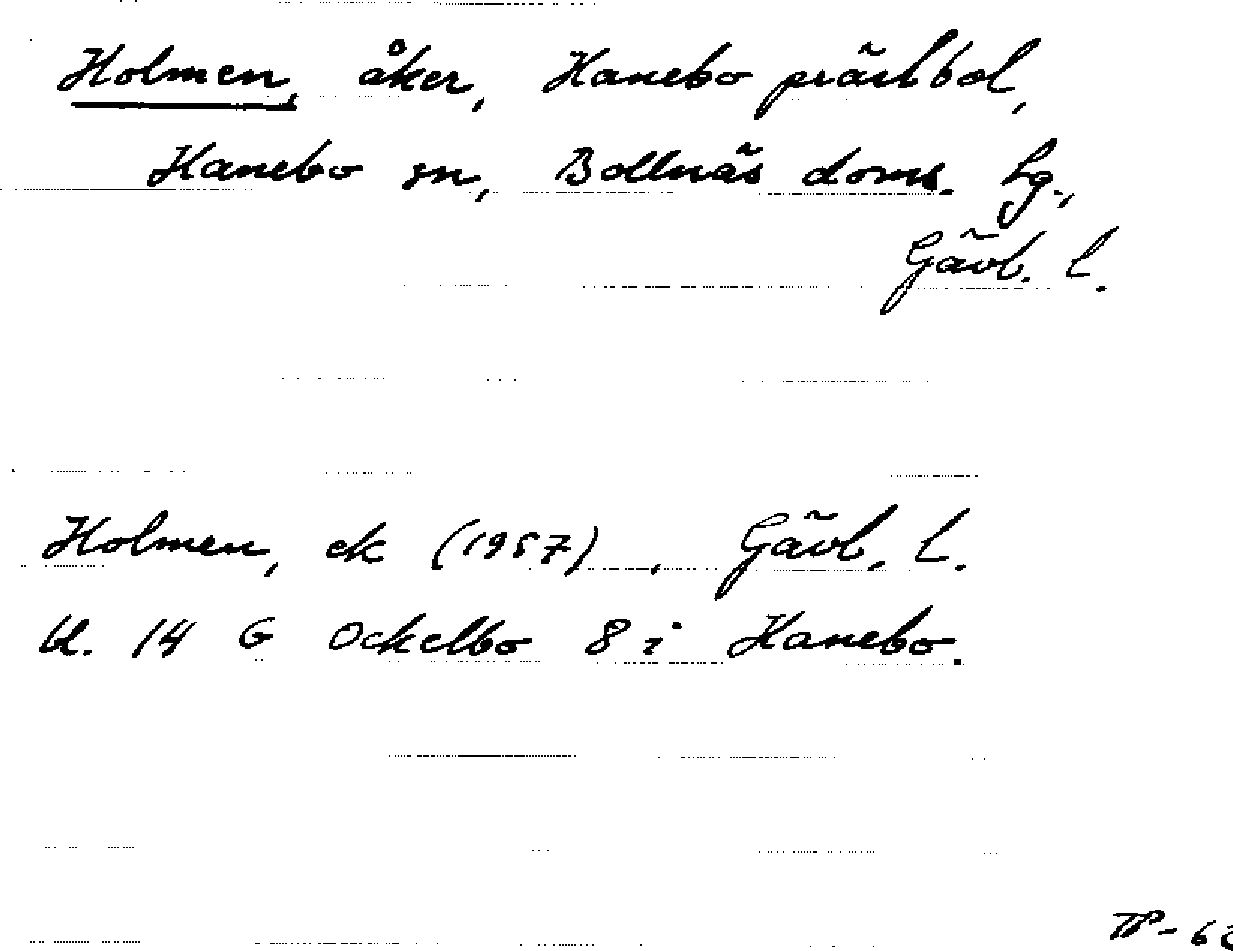 Holmen, åker, Hanebo prästbol,
Hanebo sn, Bollnäs doms. hg.,
Gävl. l.
Holmen, ek (1957), Gävl. L.
bl. 14 G Ockelbo 8 i Hanebo.